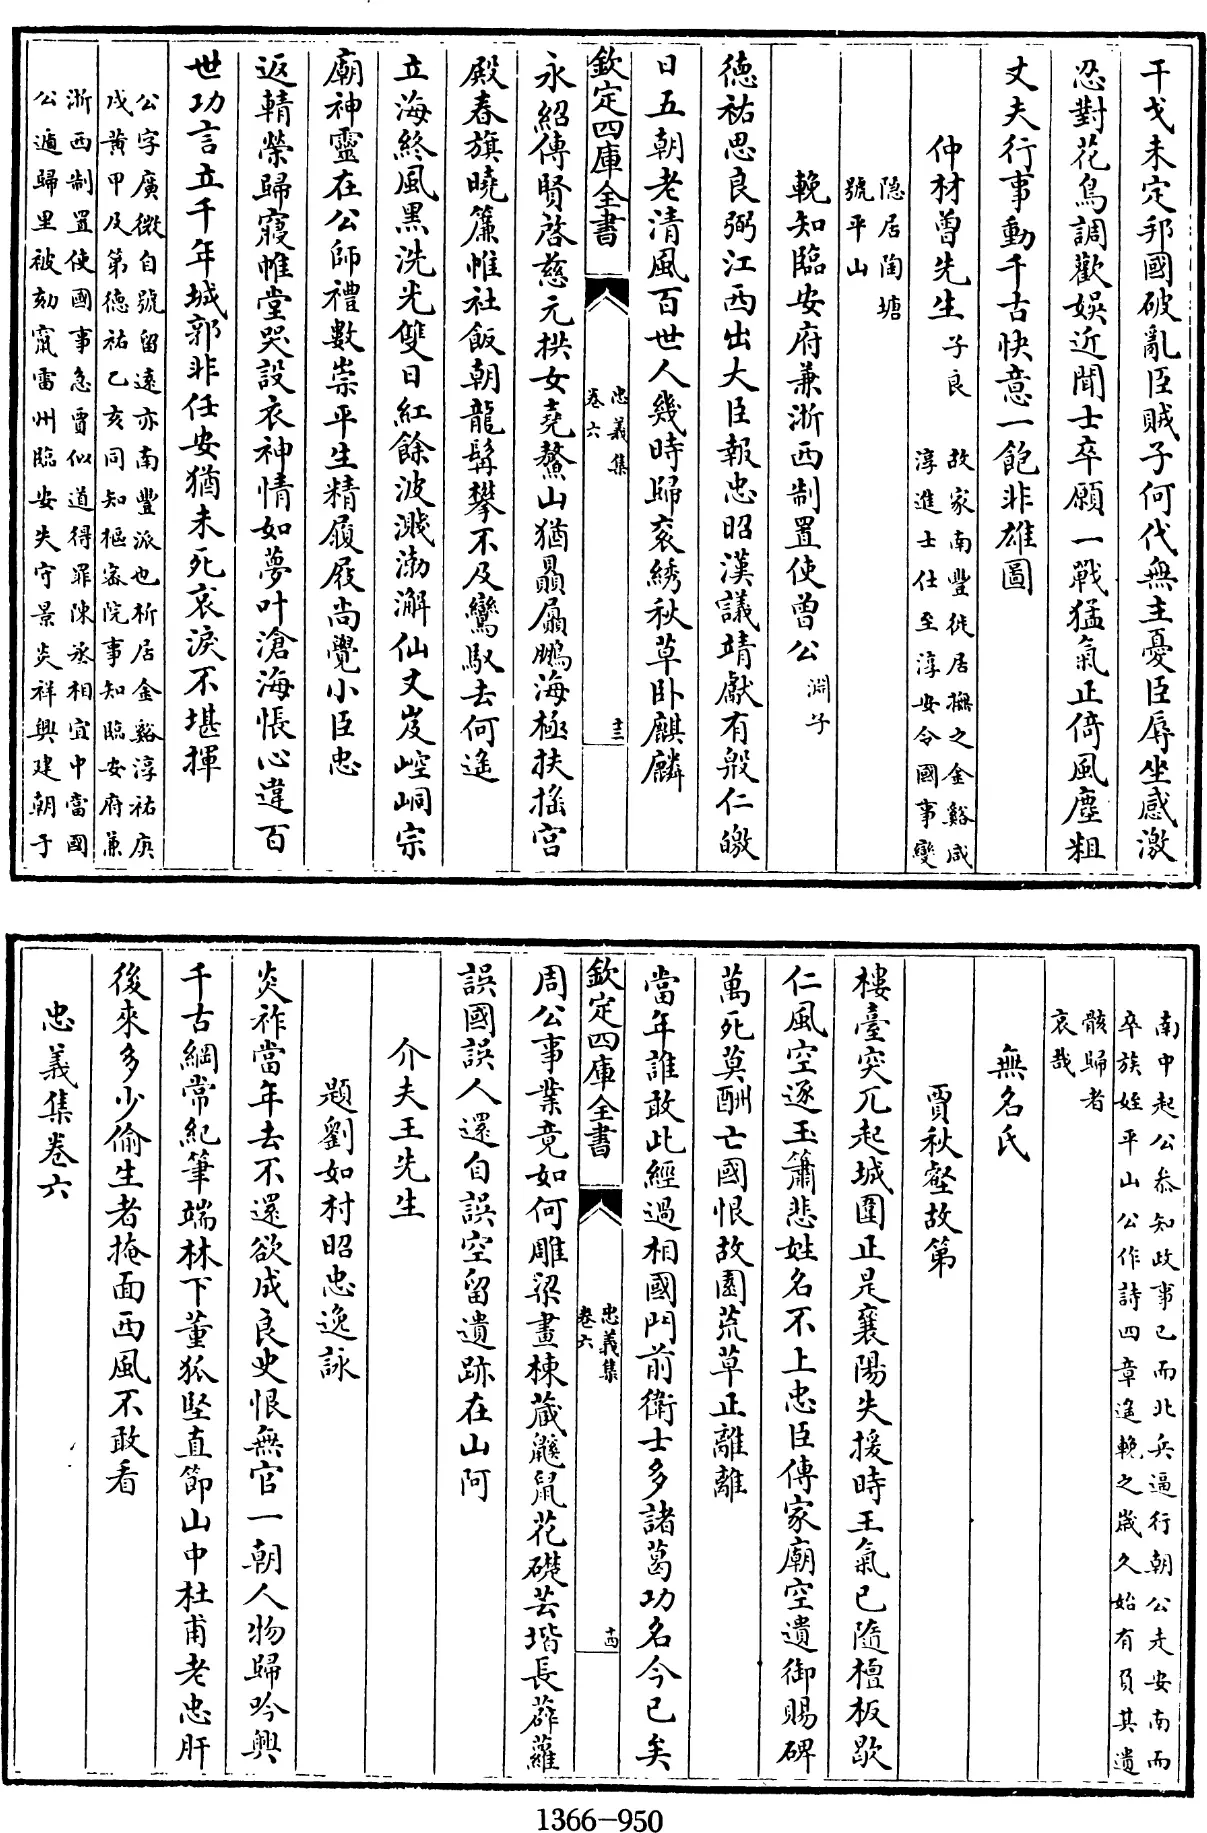 干戈未定邦國破亂臣賊子何代無主憂臣辱坐感激
忍對花鳥調歡娛近聞士卒願一戰猛氣正倚風塵粗
丈夫行事動千古快意一飽非雄圖
仲材曾先生
子良
故家南豐徙居撫之金谿咸
淳進士仕至淳安令國事變
隐居陶塘
號平山
輓知臨安府兼浙西制置使曾公
淵子
德祐思良弼江西出大臣報忠昭漢議靖獻有殷仁皦
日五朝老清風百世人幾時歸衮綉秋草卧麒麟
欽定四庫全書
忠義集
卷六
十三
永紹傳賢啓慈元拱女堯鰲山猶贔屭鵬海極扶摇宫
殿春旗曉簾帷社飯朝龍髯攀不及鸞馭去何遙
立海終風黑洗光雙日紅餘波濺渤澥仙丈岌崆峒宗
廟神靈在公師禮數崇平生精履屐尚覺小臣忠
返轖榮歸寢帷堂哭設衣神情如夢叶滄海悵心違百
世功言立千年城郭非任安猶未死哀淚不堪揮
公字廣微自號留遠亦南豐派也析居金谿淳祐庚
戌黄甲及第德祐乙亥同知樞密院事知臨安府兼
浙西制置使國事急賈似道得罪陳丞相宜中當國
公遁歸里被劾竄雷州臨安失守景炎祥興建朝于
南中起公叅知政事已而北兵逼行朝公走安南而
卒族姪平山公作詩四章遙輓之歲久始有負其遺
骸歸者
哀哉
無名氏
賈秋壑故第
樓臺突兀起城圍正是襄陽失援時王氣已隨檀板歇
仁風空逐玉簫悲姓名不上忠臣傳家廟空遺御賜碑
萬死莫酬亡國恨故園荒草正離離
當年誰敢此經過相國門前衛士多諸葛功名今已矣
欽定四庫全書
忠義集
卷六
十四
周公事業竟如何雕梁畫棟藏鼷鼠花礎芸堦長薜蘿
誤國誤人還自誤空留遺跡在山阿
介夫王先生
題劉如村昭忠逸詠
炎祚當年去不還欲成良史恨無官一朝人物歸吟興
千古綱常紀筆端林下董狐堅直節山中杜甫老忠肝
後來多少偷生者掩面西風不敢看
忠義集卷六
1366-950